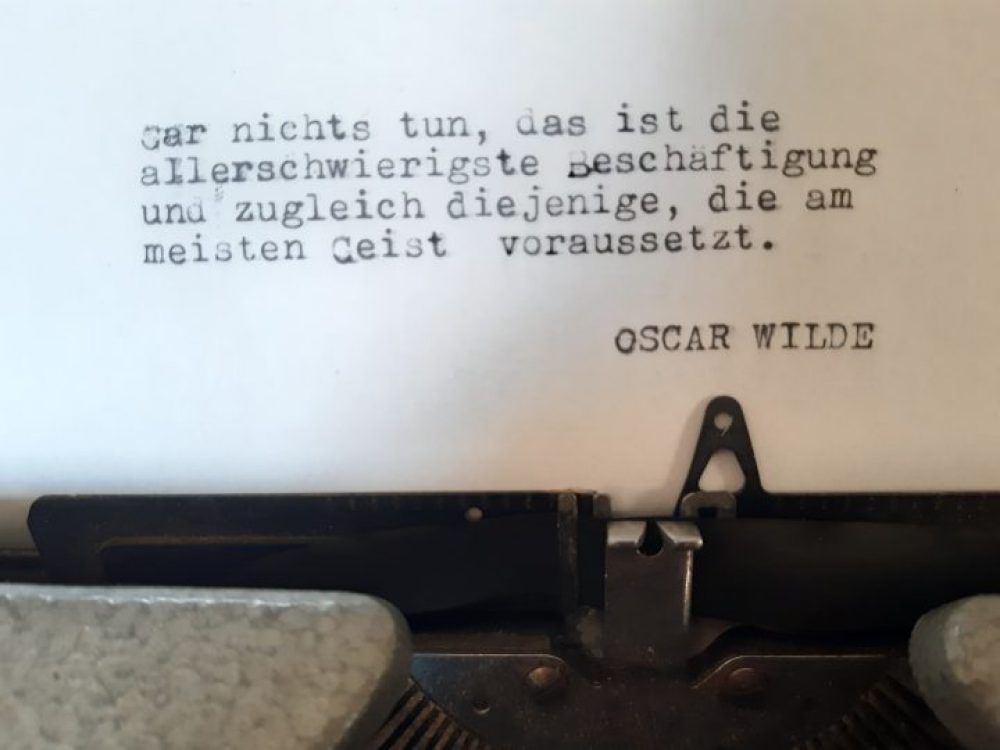 Gar nichts tun, das ist die
allerschwierigste Beschäftigung
und zugleich diejenige, die am
meisten Geist voraussetzt.
OSCAR WILDE